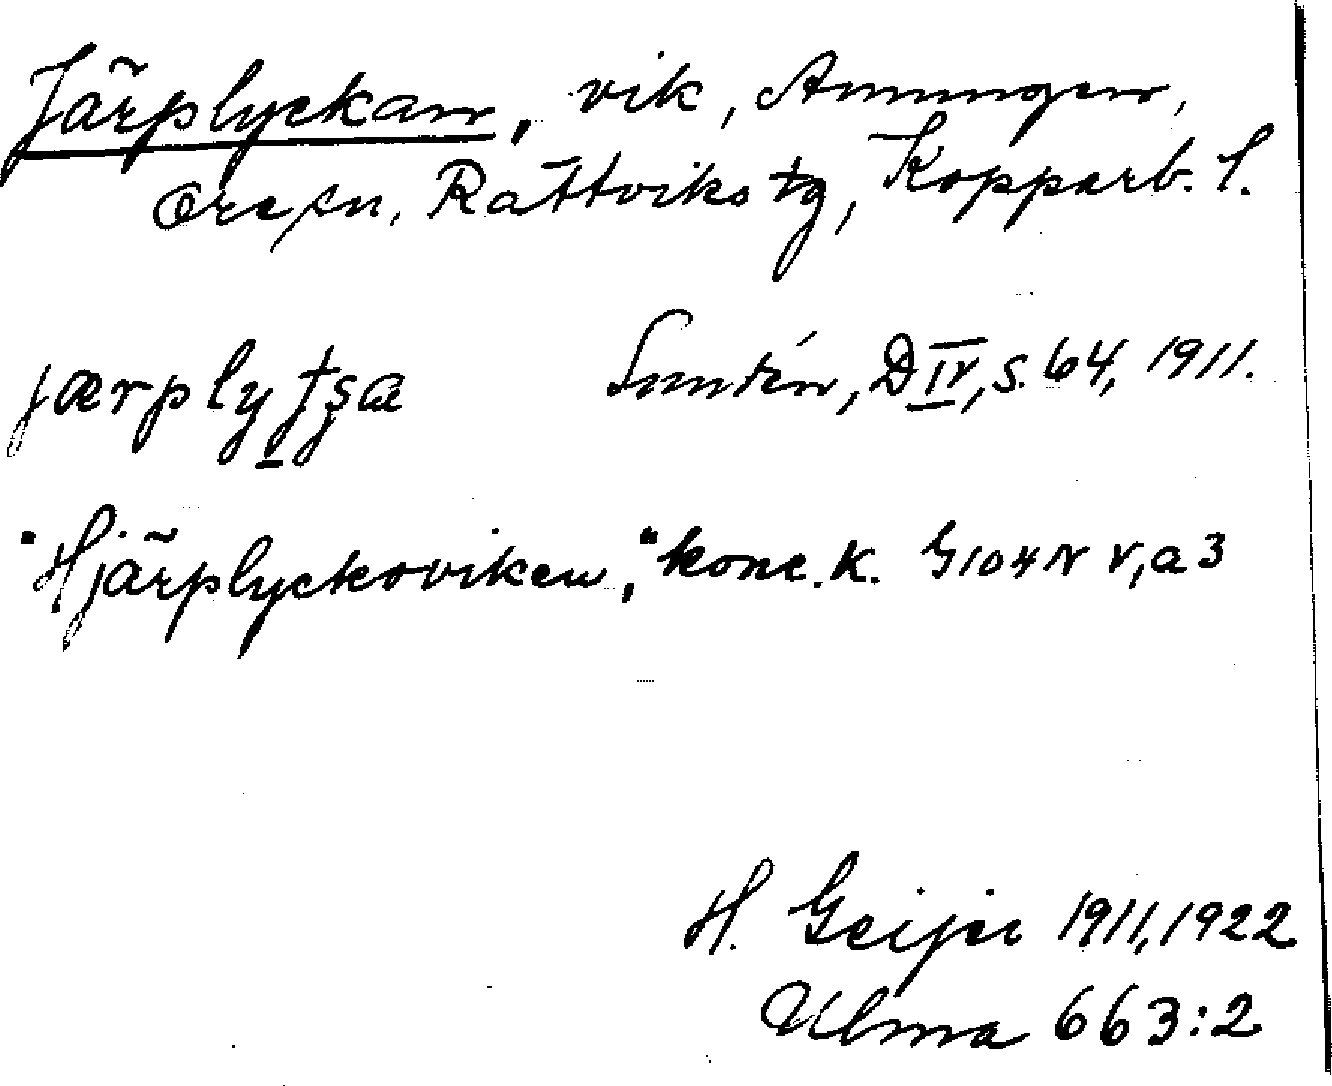 Järplyckan, vik, Amungen,
Ore sn, Rättviks tg, Kopparb. l.
jærplyt̠ʂa Suntén, D IV, s. 64, 1911.
"Hjärplyckoviken," konc. k. G 104 N V, a 3
H. Geijer 1911, 1922
Ulma 663:2